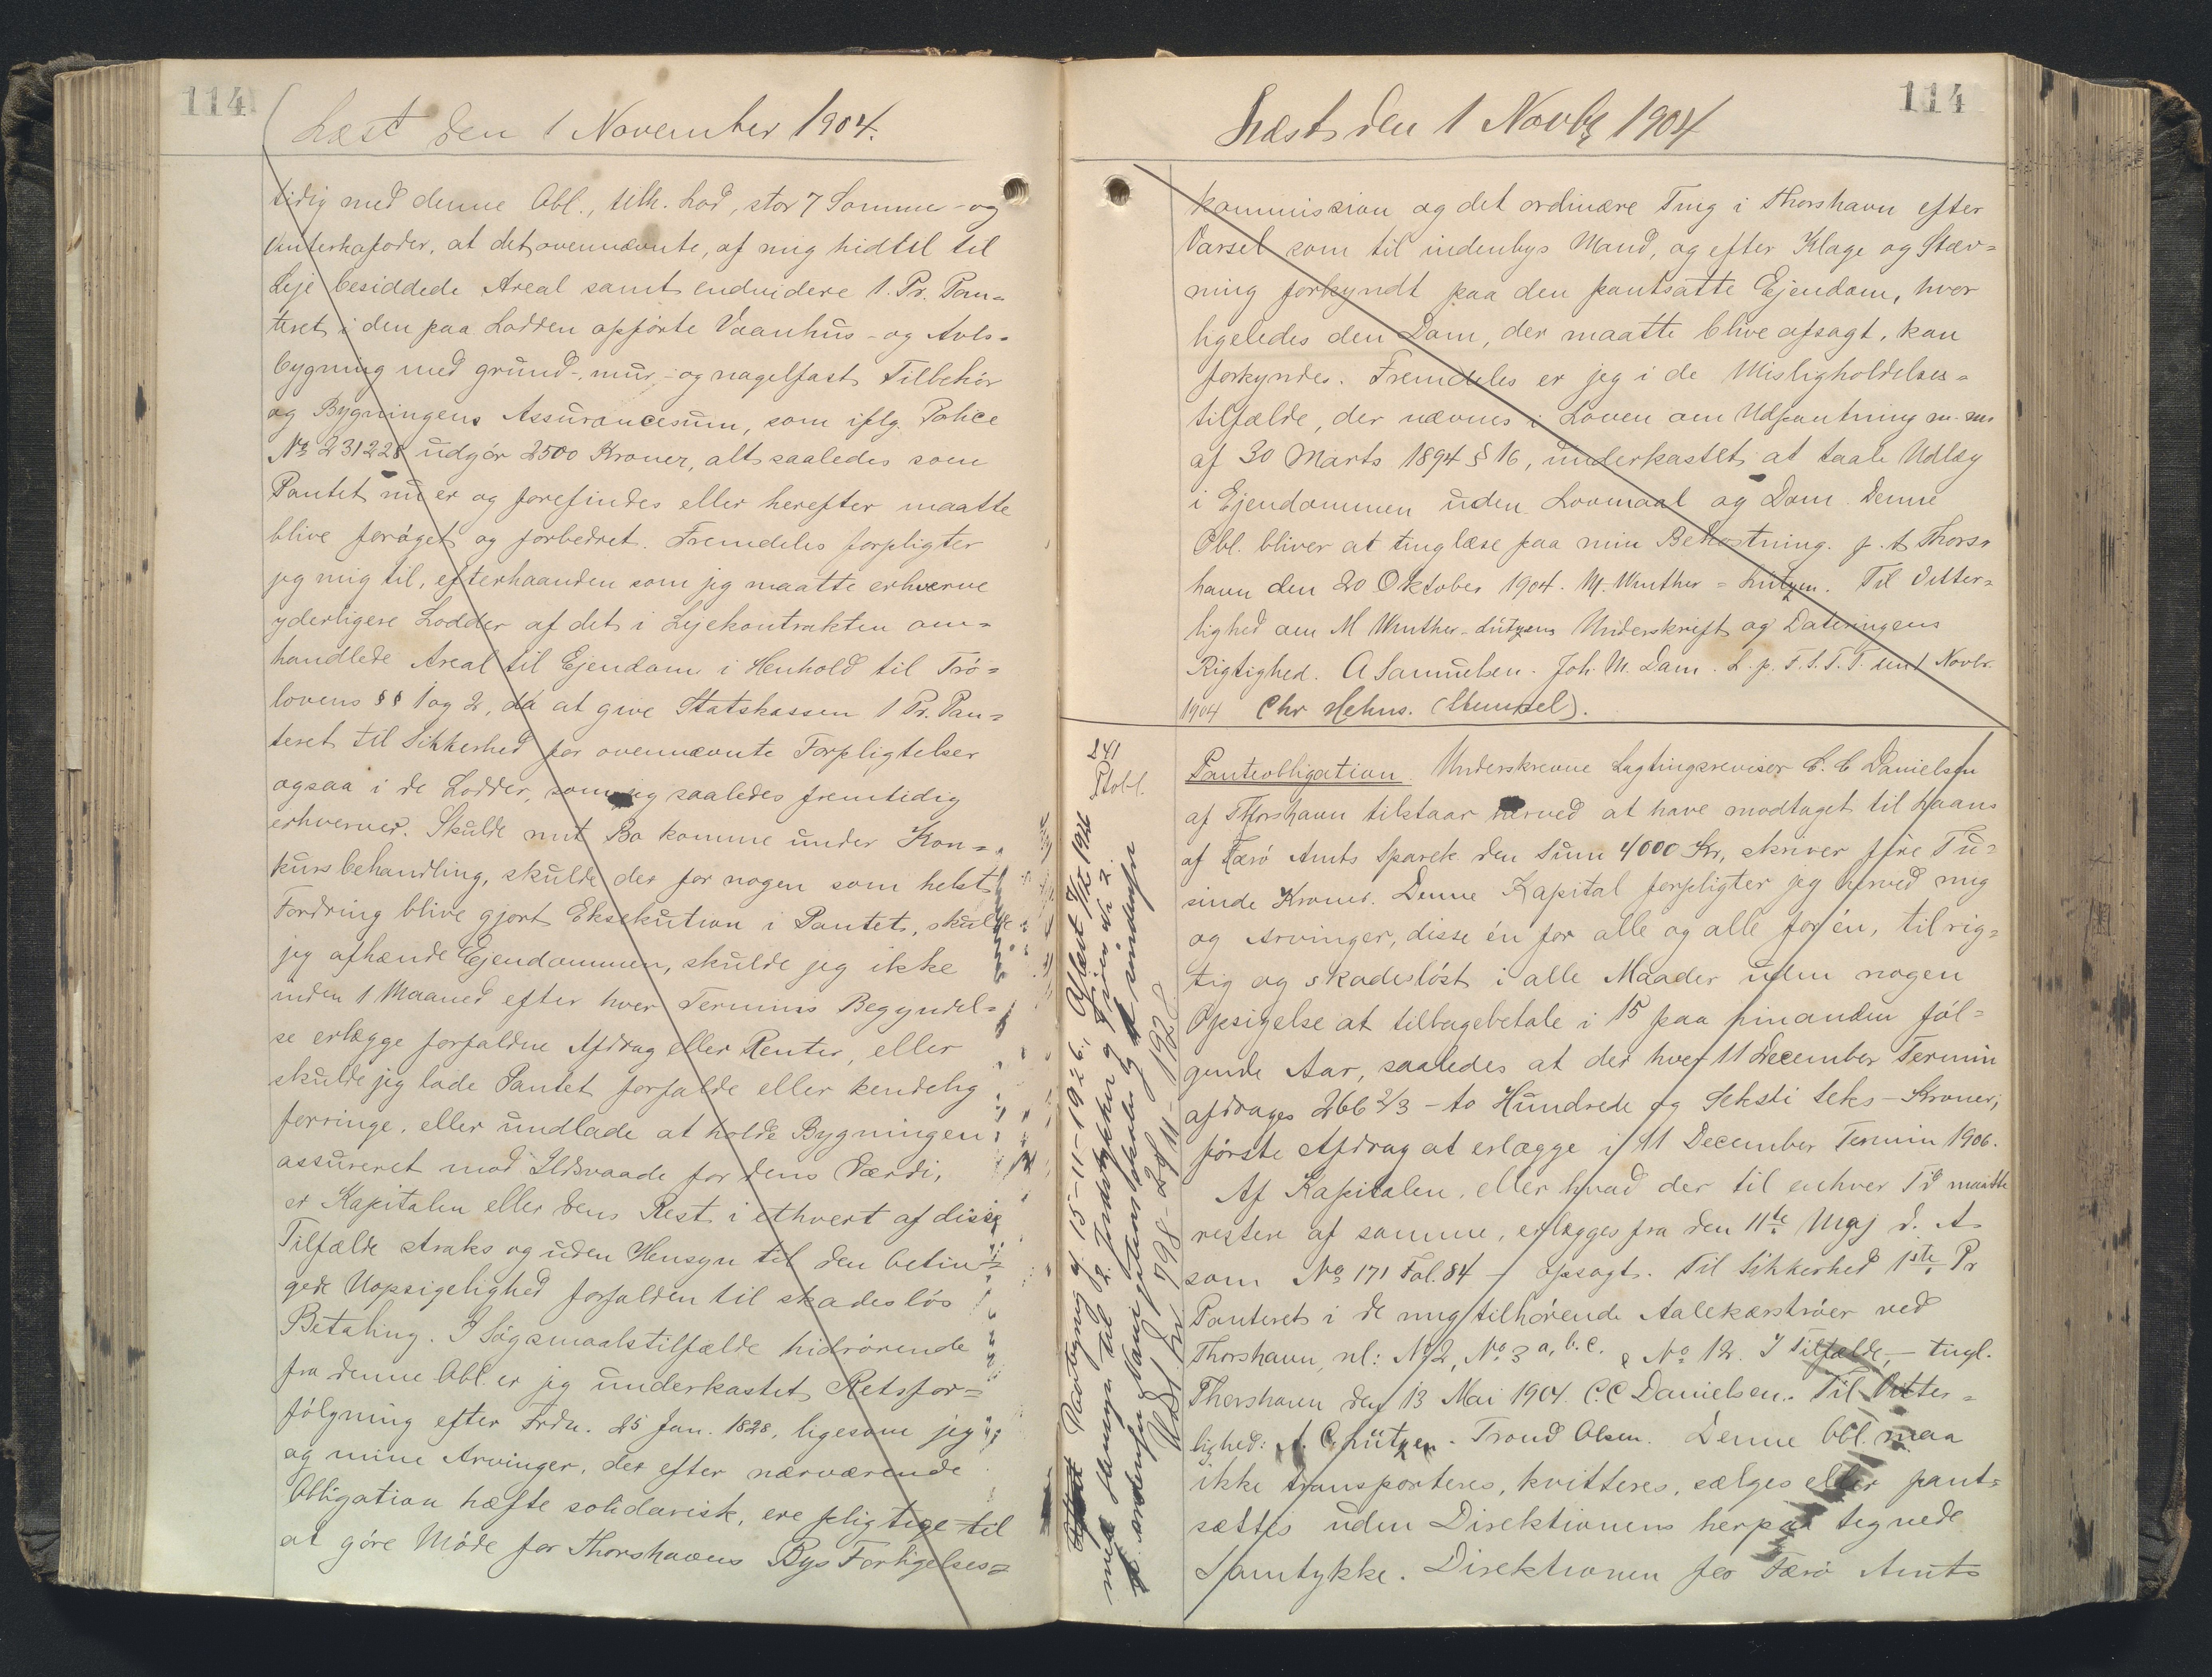 114
Læst den 1 November 1904.
tidig med denne Obl., tilh. Lod, stor 7 Sommer- og
Vinterkofoder, at det ovennævnte, af mig hidtil til
Leje besiddede Areal samt endvidere 1. Pr. Pan=
teret i den paa Lodden opførte Vaanhus- og Avls-
bygning med grund-, mur- og nagelfast Tilbehör
og Bygningens Assurancesum, som iflg. Police
No 231228 udgör 2500 Kroner, alt saaledes som
Pantet nu er og forefindes eller herefter maatte
blive forøget og forbedret. Fremdeles forpligter
jeg mig til, efterhaanden som jeg maatte erhverve
yderligere Lodder af det i Lejekontrakten om=
handlede Areal til Ejendom i Henhold til Trö=
lovens §§ 1 og 2, da at give Statskassen 1 Pr. Pan=
teret til Sikkerhed for ovennævnte Forpligtelser
ogsaa i de Lodder, som jeg saaledes fremtidig
erhverver. Skulde mit Bo komme under Kon=
kursbehandling, skulde der for nogen som helst
Fordring blive gjort Eksekution i Pantet, skulde
jeg afhænde Ejendommen, skulde jeg ikke
inden 1 Maaned efter hver Termins Begyndel=
se erlægge forfaldne Afdrag eller Renter, eller
skulde jeg lade Pantet forfalde eller kendelig
forringe, eller undlade at holde Bygningen
assureret mod Ildsvaade for dens Værdi,
er Kapitalen eller dens Rest i ethvert af disse
Tilfælde straks og uden Hensyn til den betin=
gede Uopsigelighed forfalden til skadeslös
Betaling. I Sögsmaalstilfælde hidrörende
fra denne Obl. er jeg underkastet Retsfor=
fölgning efter Frdn. 25 Jan. 1828, ligesom jeg
og mine Arvinger, der efter nærværende
Obligation hæfte solidarisk, ere pligtige til
at göre Möde for Thorshavns Bys Forligelses=
114
Læst den 1 Novbr 1904
kommission og det ordinære Ting i Thorshavn efter
Varsel som til indenbys Mand, og efter Klage og Stæv=
ning forkyndt paa den pantsatte Ejendom, hvor
ligeledes den Dom, der maatte blive afsagt, kan
forkyndes. Fremdeles er jeg i de Misligholdelses=
tilfælde, der nævnes i Loven om Udpantning m. m.
af 30 Marts 1894 § 16, underkastet at taale Udlæg
i Ejendommen uden Lovmaal og Dom. Denne
Obl. bliver at tinglæse paa min Bekostning. p. t. Thors=
havn den 20 Oktober 1904. M. Winther = Lützen. Til Vitter=
lighed om M Winther-Lützens Underskrift og Dateringens
Rigtighed. A Samuelsen. Joh. M. Dam. L. p. F. S. T. T. den 1 Novbr.
1904 Chr Hehns. (Stempel).
241
Ptobl.
Panteobligation. Underskrevne Lagtingsrevisor C. C Danielsen
af Thorshavn tilstaar herved at have modtaget til Laans
af Færö Amts Sparek. den Sum 4000 Kr, skriver fire Tu=
sinde Kroner. Denne Kapital forpligter jeg herved mig
og Arvinger, disse én for alle og alle for én, til rig=
tig og skadeslöst i alle Maader uden nogen
Opsigelse at tilbagebetale i 15 paa hinanden föl=
gende Aar, saaledes at der hver 11 December Termin
afdrages 266 2/3 - to Hundrede og Seksti Seks - Kroner,
förste Afdrag at erlægge i 11 December Termin 1906.
Af Kapitalen, eller hvad der til enhver Tid maatte
restere af samme, erlægges fra den 11te Maj d. A.
som No 171 Fol. 84 - opsagt. Til Sikkerhed 1ste Pr
Panteret i de mig tilhörende Aalekærströer ved
Thorshavn, nl: No 2, No 3 a, b. c. & No 12. I Tilfælde, - tingl.
Thorshavn den 13 Mai 1904. C. C Danielsen. Til Vitter=
lighed: A. C. Lützen. Trond Olsen. Denne Obl. maa
ikke transporteres, kvitteres, sælges eller pant=
sættes uden Direktionens herpaa tegnede
Samtykke. Direktionen for Færö Amts
Paategning af 15-11-1926, Aflæst 1926
med Hensyn til
Udsl. Nr 798 - 1928